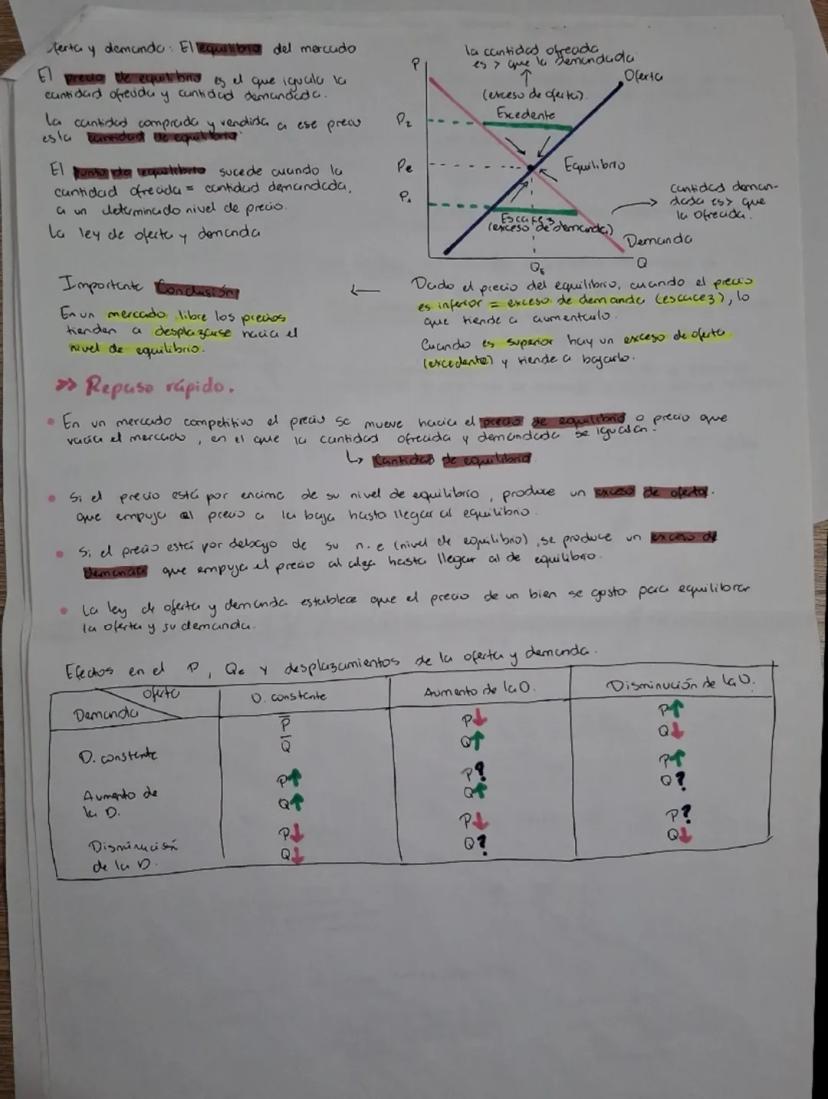 oferta y demanda: El equilibrio del mercado
El precio de equilibrio es el que iguala la
cantidad ofrecida y cantidad demandada.
La cantidad comprada y vendida a ese precio
es la cantidad de equilibrio.
El punto de equilibrio sucede cuando la
cantidad ofrecida = cantidad demandada,
a un determinado nivel de precio.
La ley de oferta y demanda
la cantidad ofrecida
es > que la demandada
(exceso de oferta).
Excedente
P
Oferta
P2
Pe
Equilibrio
P1
Escasez
(exceso de demanda)
cantidad deman-
dada es > que
la ofrecida.
Demanda
Q
Importante Conclusión
En un mercado libre los precios
tienden a desplazarse hacia el
nivel de equilibrio.
← Dado el precio del equilibrio, cuando el precio
es inferior = exceso de demanda (escasez), lo
que tiende a aumentarlo.
Cuando es superior hay un exceso de oferta
(excedente) y tiende a bajarlo.
>> Repaso rápido.
• En un mercado competitivo el precio se mueve hacia el precio de equilibrio o precio que
vacia el mercado, en el que la cantidad ofrecida y demandada se igualan.
↳ Cantidad de equilibrio
• Si el precio está por encima de su nivel de equilibrio, produce un exceso de oferta.
que empuja al precio a la baja hasta llegar al equilibrio.
• Si el precio está por debajo de su n.e (nivel de equilibrio), se produce un exceso de
demanda que empuja el precio al alza hasta llegar al de equilibrio.
• La ley de oferta y demanda establece que el precio de un bien se ajusta para equilibrar
la oferta y su demanda.
Efectos en el P, Qe y desplazamientos de la oferta y demanda.
Oferta
Demanda
O. constante
Aumento de la O.
Disminución de la O.
D. constante
P̅
Q̅
P↓
Q↑
P↑
Q↓
Aumento de
la D.
P↑
Q↑
P?
Q↑
P↑
Q?
Disminución
de la D.
P↓
Q↓
P↓
Q?
P?
Q↓